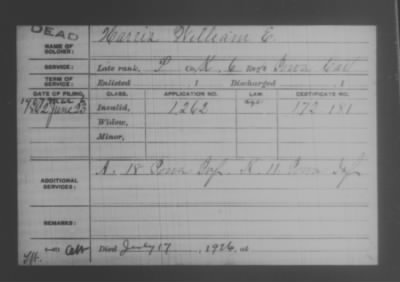 DEAD
NAME OF SOLDIER: Harris William E.
SERVICE: Late rank, P Co. K, 6 Reg't Iowa Cav
TERM OF SERVICE: Enlisted 1 Discharged , 1
DATE OF FILING. CLASS. APPLICATION NO. LAW. CERTIFICATE NO.
1882 June 23 Invalid, 1,262 age 172 181
Widow,
Minor,
ADDITIONAL SERVICES: A. 18 Iowa Inf. K. 11 Iowa Inf
REMARKS:
Died July 17, 1926, at